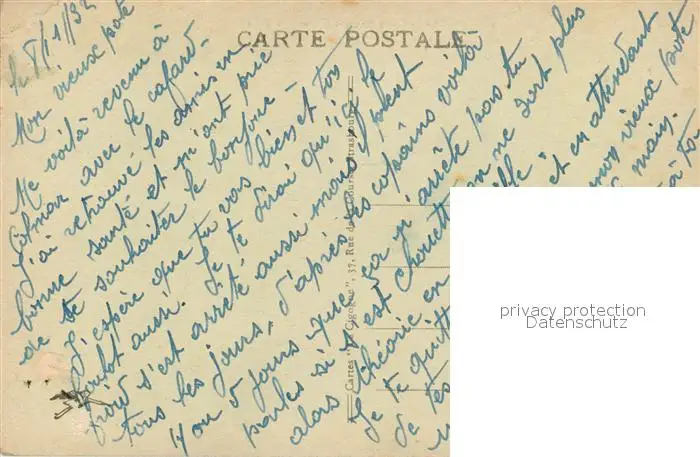 CARTE POSTALE
le 8/11/32
Mon vieux pote
Me voilà revenu à
Colmar avec le cafard.
J'ai retrouvé les amis en
bonne santé et m'ont prié
de te souhaiter le bonjour.
J'espère que tu vas bien et ton
boulot aussi. Je te dirai qu'ici le
froid s'est arrêté aussi mais il pleut
tous les jours, d'après les copains voilà
4 ou 5 jours que ça n'arrête pas tu
parles si c'est chouette on ne sort plus
alors théorie en
Je te quitte et en attendant
de tes mon vieux pote
main.
à toi
Cartes "La Cigogne", 37, Rue de la Course, Strasbourg
privacy protection
Datenschutz